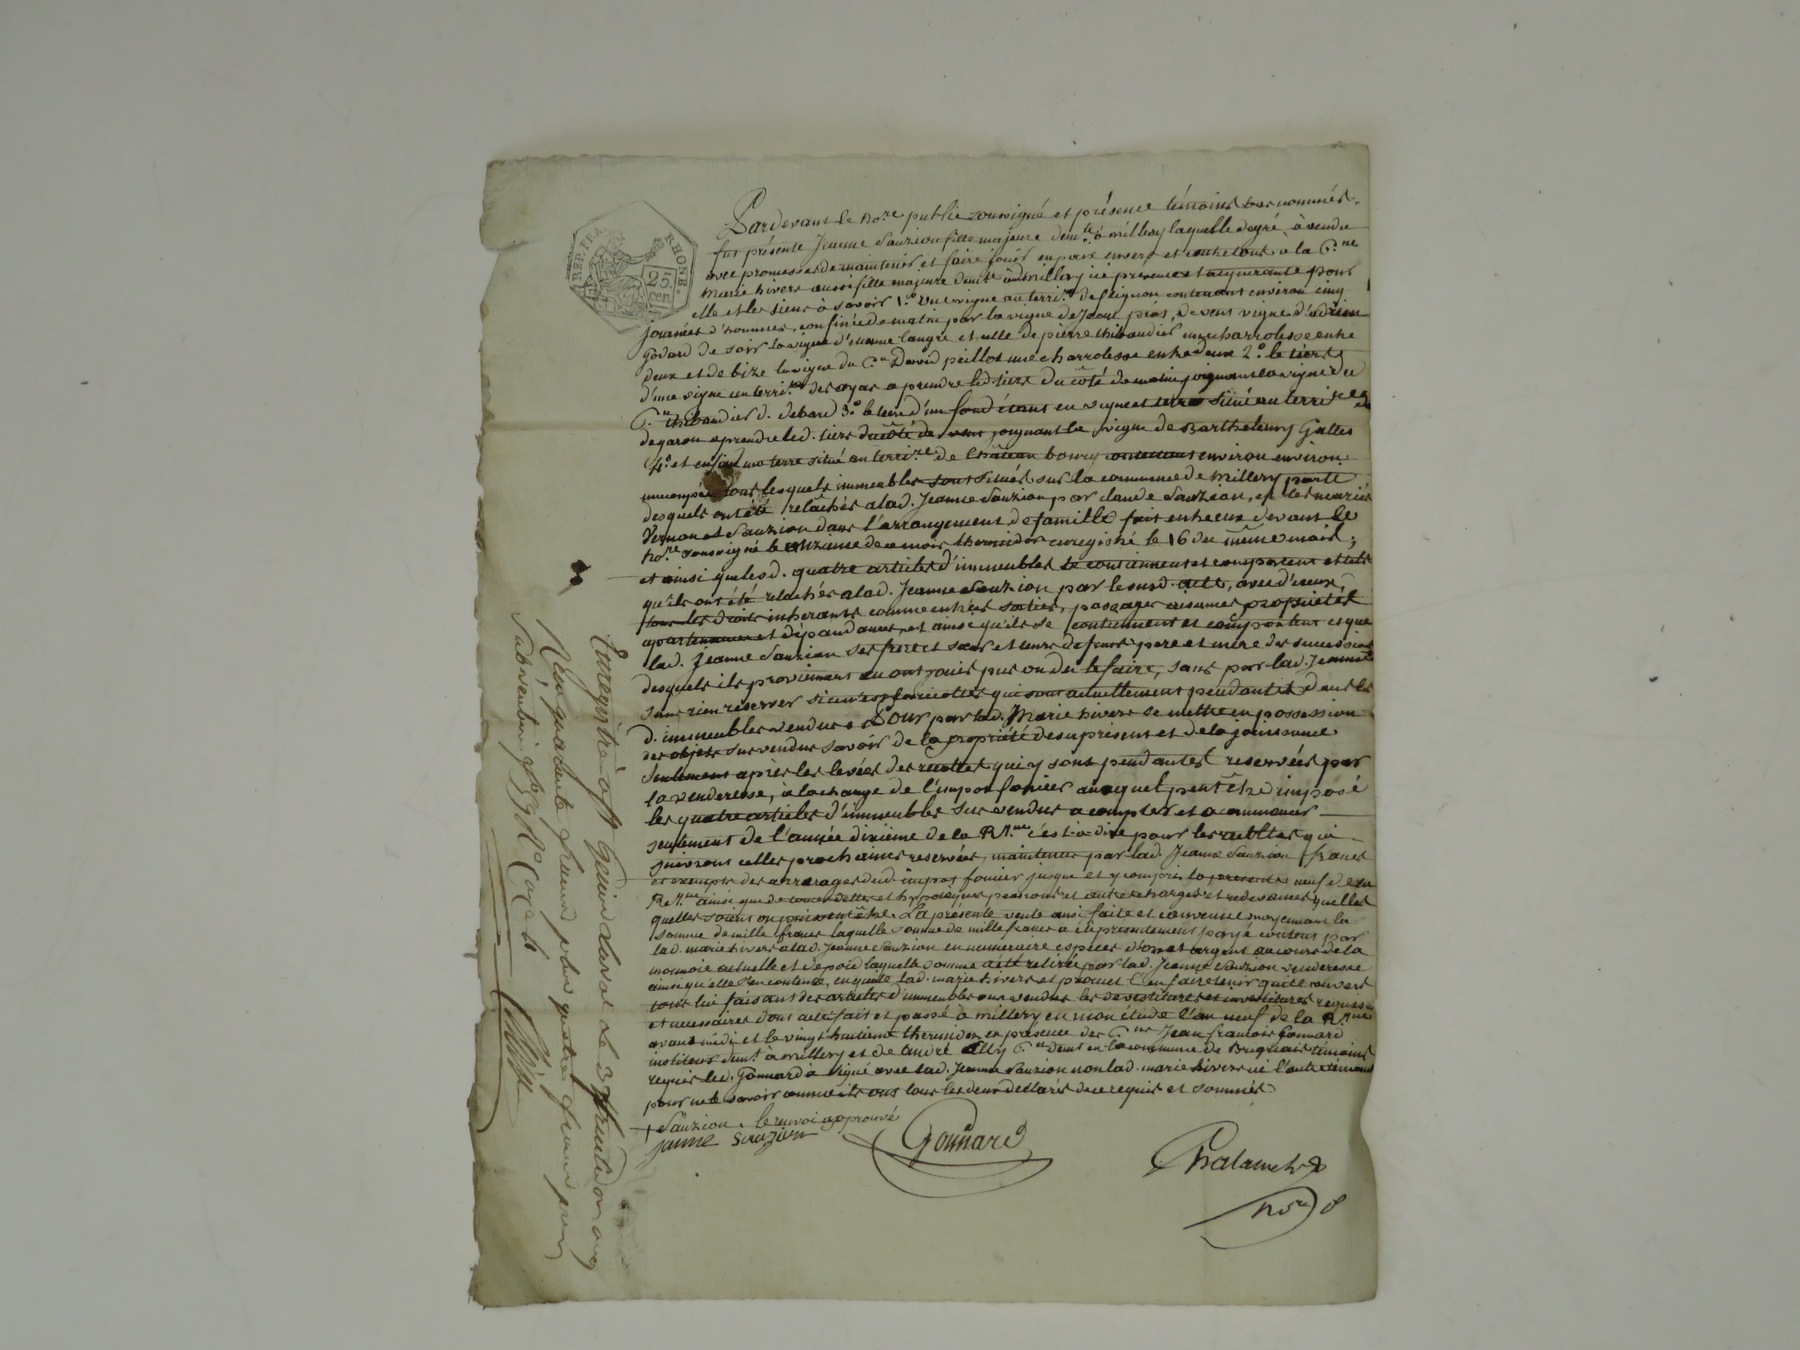 REP. FRA.
RHONE.
25
cen.
Pardevant le no.re public soussigné et présence témoins bas nommés.
fut présente Jeanne Sauzion fille majeure dem.te à millery laquelle degré, à vendu
avec promesses de maintenir et faire jouir en paix envers et contre tous a la C.ne
Marie hivers aussi fille majeure dem.te à millery ici presente et acquerante pour
elle et les siens à savoir 1.° une vigne au terri.re de contenant environ cinq
journées d'hommes, confinée de matin par la vigne de Jean pras, de vent vigne d'
godard de soir la vigne d'etienne langre et celle de pierre thibaudier une charrolesse entre
deux et de bize la vigne du C.en David peillot une charrolesse entre deux 2.° le tiers
d'une vigne au terri.re des ayas a prendre led. tiers du côté de matin joignant la vigne du
C.en thibaudier d. debard 3.° le tiers d'un fond étant en vigne et terre situé au terri.re
de garon a prendre led. tiers du côté de vent joignant la vigne de Barthelemy Gilles
4.° et enfin une terre situé au terri.re de Château bourg contenant environ environ
tous lesquels immeubles sont situés sur la commune de millery partie
desquels ont été relachés a lad. Jeanne Sauzion par claude Sauzion, et les mariés
Vernon et Sauzion dans l'arrangement de famille fait entre eux devant le
no.re soussigné le onzieme de ce mois thermidor enregistré le 16 du même mois;
et ainsi que lesd. quatre articles d'immeubles se contiennent et comportent et tels
qu'ils ont été relachés a lad. Jeanne Sauzion par le susd. acte, avec d'iceux
tous les droits inherants comme entrées sorties, passages aisances propriétés
apartenances et dépandances, et ainsi qu'ils se contiennent et comportent et que
lad. Jeanne Sauzion ses frere et sœur et leurs defunts pere et mere des successions
desquels ils proviennent en ont jouis pus ou du le faire, sans par lad. Jeanne
sans rien reserver si ce n'est les recoltes qui sont actuellement pendantes dans les
d. immeubles vendus. Pour par lad. Marie hivers se mettre en possession
des objets sus vendus savoir de la propriété des a présent et de la jouissance
seulement après les levées des recoltes qui y sont pendantes reservées par
la venderesse, à la charge de l'impot foncier auquel peut être imposé
les quatre articles d'immeubles sus vendus a compter et a commencer
seulement de l'année dixième de la R.que c'est-à-dire pour les recoltes qui
suivront celles prochaines reservées, maintenus par lad. Jeanne Sauzion francs
et exempts des arrerages dud. impot foncier jusque et y compris la presente neuf de la
Re.que ainsi que de toutes dettes et hypoteques pensions et autres charges et redevances quelles
quelles soient ou puissent être. La présente vente ainsi faite et convenue moyennant la
somme de mille francs laquelle somme de mille francs a été presentement payé comptant par
lad. marie hivers a lad. Jeanne Sauzion en numeraire especes d'or et argent au cours de la
monnoie actuelle et de poid laquelle somme a été retirée par lad. Jeanne Sauzion venderesse
ainsi qu'elle s'en contente, en quitte lad. marie hivers et promet l'en faire tenir quitte envers
tous lui faisant des articles d'immeubles sus vendus les devestitures et investitures requises
et necessaires dont acte fait et passé à millery en mon étude l'an neuf de la R.que
avant midi et le vingt huitieme thermidor en présence des C.ens Jean francois Gonnard
instituteur dem.t à millery et de andré C.en dem.t en la commune de Brignais témoins
requis led. Gonnard à signé avec lad. Jeanne Sauzion non lad. marie hivers ni l'autre témoin
pour ne le savoir comme ils ont tous les deux declarés de ce requis et sommés
+ Sauzion. le renvoi approuvé
janne sauzion
Gonnard
no.re
Enregistré à le 3 fructidor an 9
Reçu quarante francs pour quatre francs
Subvention